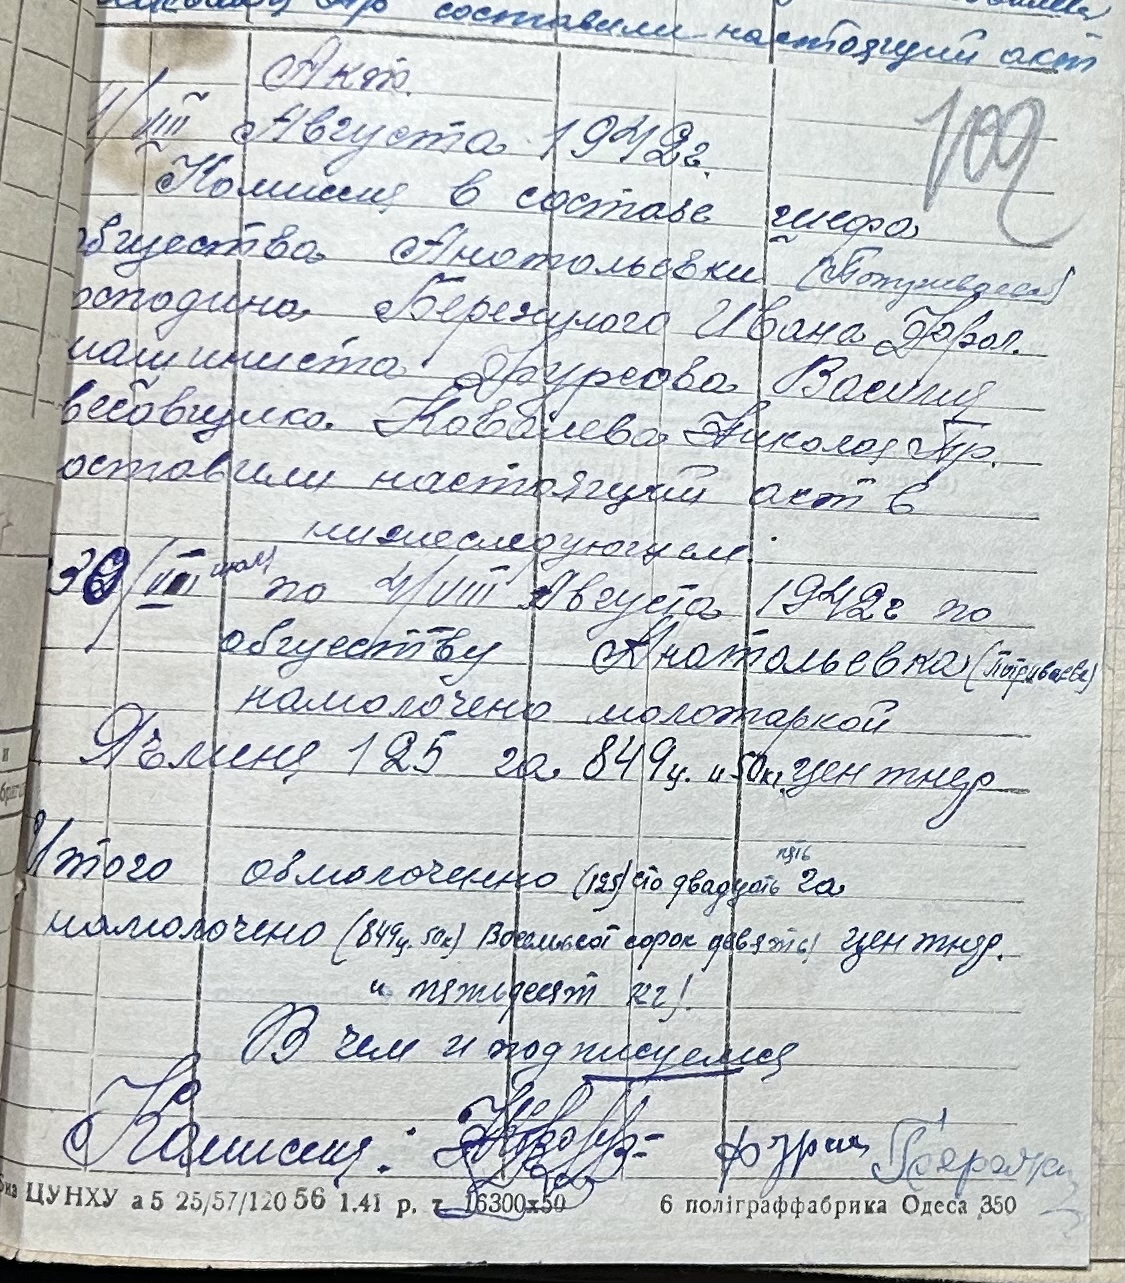 составили настоящий акт
Акт.
4/VIII Августа 1942г.
102
Комисия в составе шефа
общества Анатольевки
осподина Бережулого Ивана Фрол.
машиниста Фурсова Василия
весовщика Ковалева Николая Гр.
оставили настоящий акт в
нижеследующем:
30/VII июля по 4/VIII Августа 1942г по
обществу Анатольевка
намолочено молотаркой
Ячменя 125 га 849ц. и 50кг. центнер
Итого обмолоченно (125) сто двадцать пять га
намолочено (849ц. 50к) Восемьсот сорок девять центнер.
и пятьдесят кг!
В чем и подписуемся
Комисия:
ЦУНХУ а 5 25/57/120 56 1.41 р. т. 16300х50 6 поліграффабрика Одеса 350